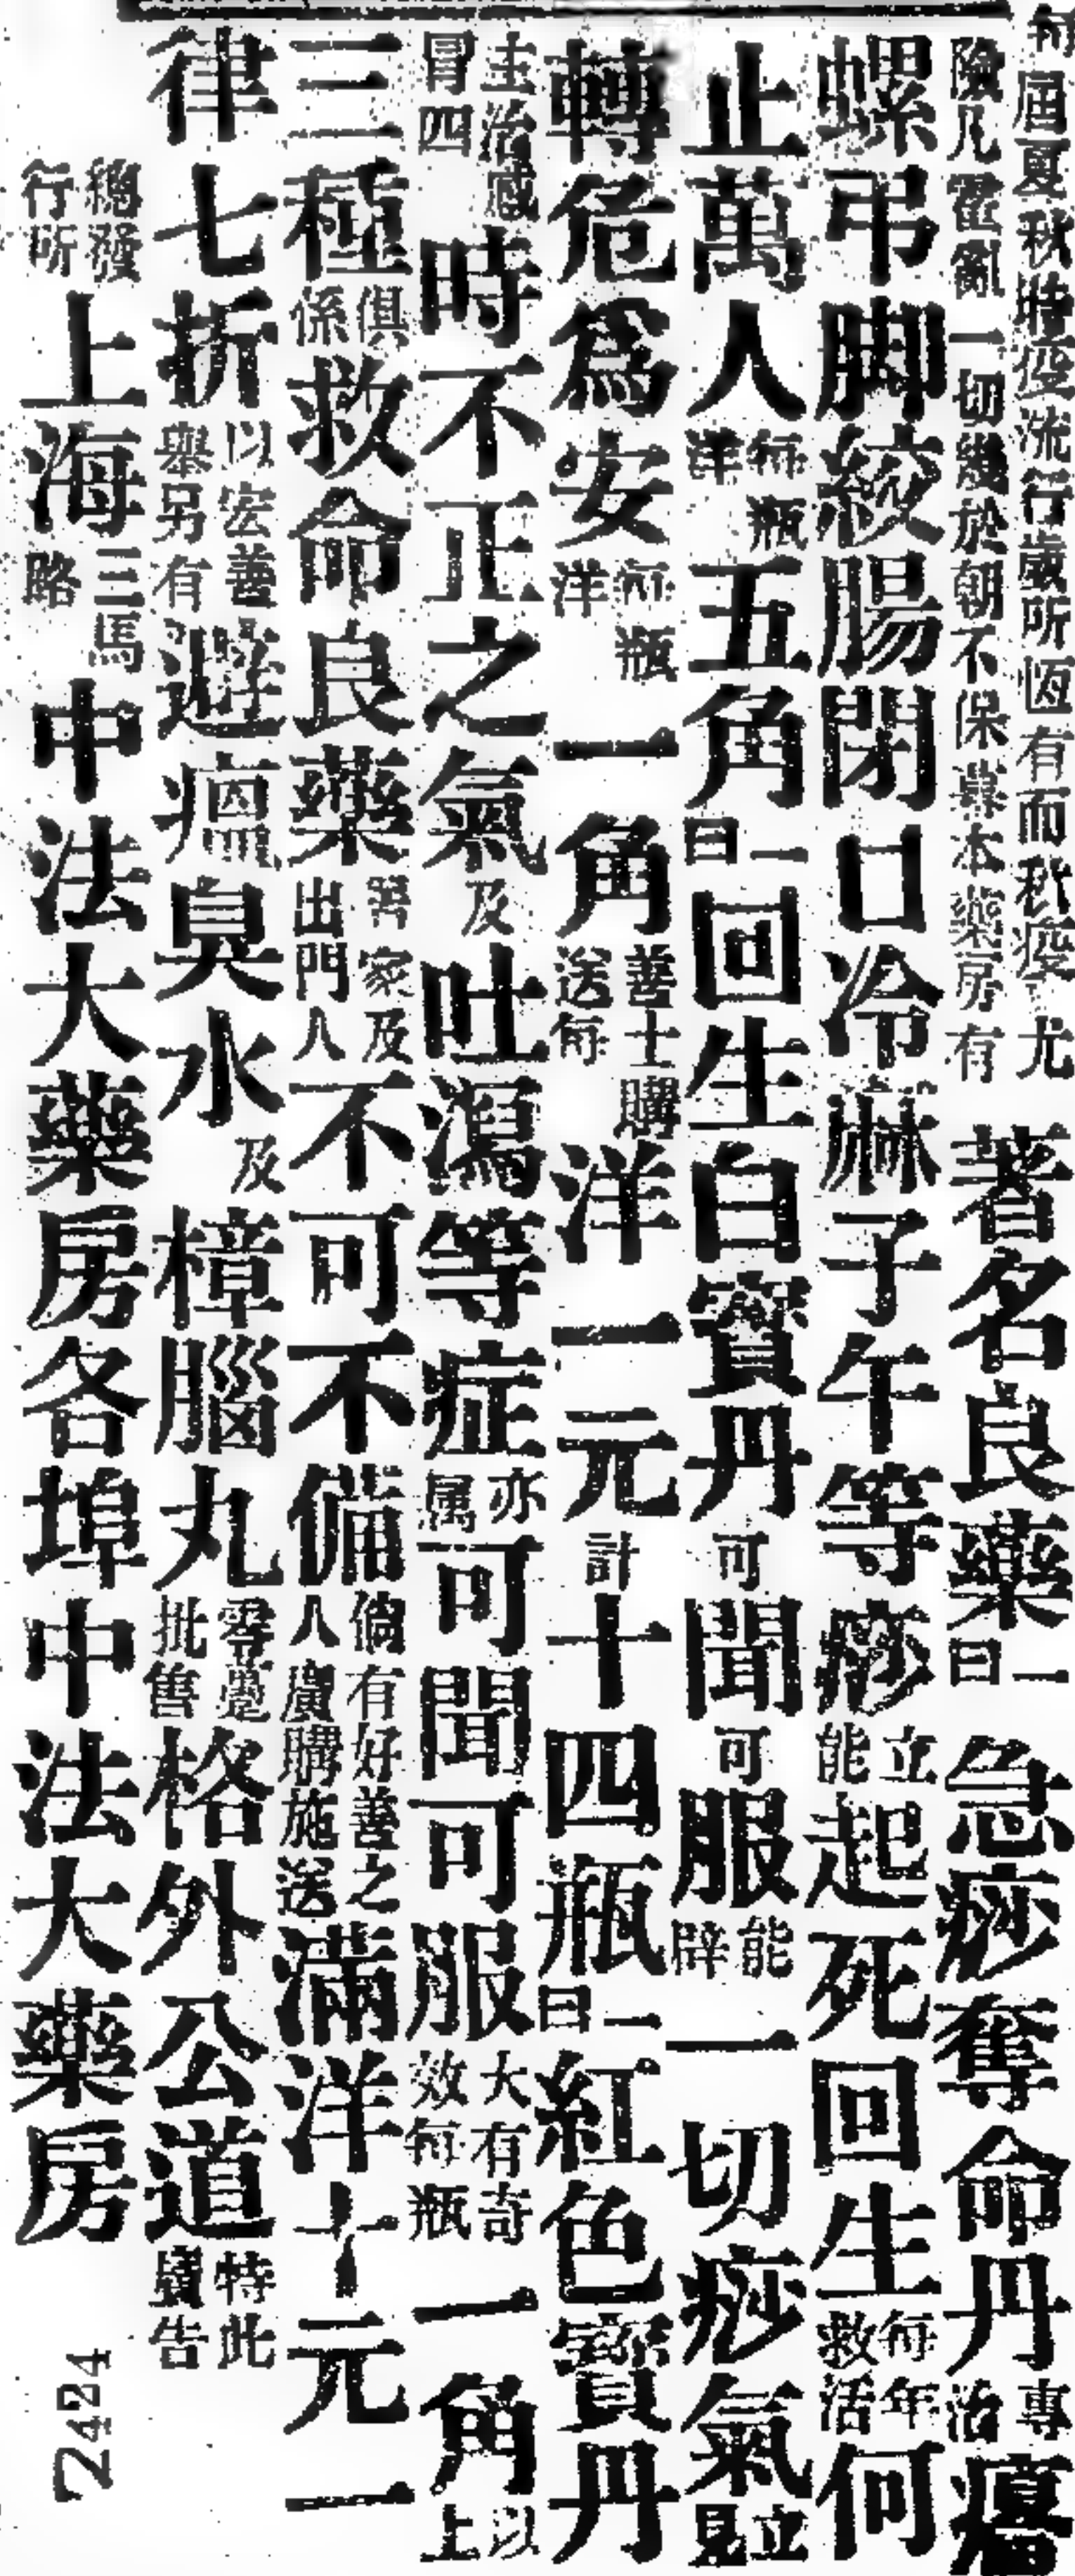 每屆夏秋時疫流行歲所恆有而秋疫尤險凡霍亂一切幾於朝不保暮本藥房有著名良藥一曰急痧奪命丹專治癟
螺弔脚絞腸閉口冷麻子午等痧立能起死回生每年救活何
止萬人每瓶洋五角一曰回生白寶丹可聞可服能辟一切痧氣立見
轉危爲安每瓶洋一角善士購送每洋一元計十四瓶一曰紅色寶丹
主治感冒四時不正之氣及吐瀉等症亦属可聞可服大有奇效每瓶一角以上
三種俱係救命良藥居家及出門人不可不備倘有好善之人廣購施送滿洋十元一
律七折以宏善舉另有避瘟臭水及樟腦丸零躉批售格外公道特此廣告
總發行所上海三馬路中法大藥房各埠中法大藥房
2424